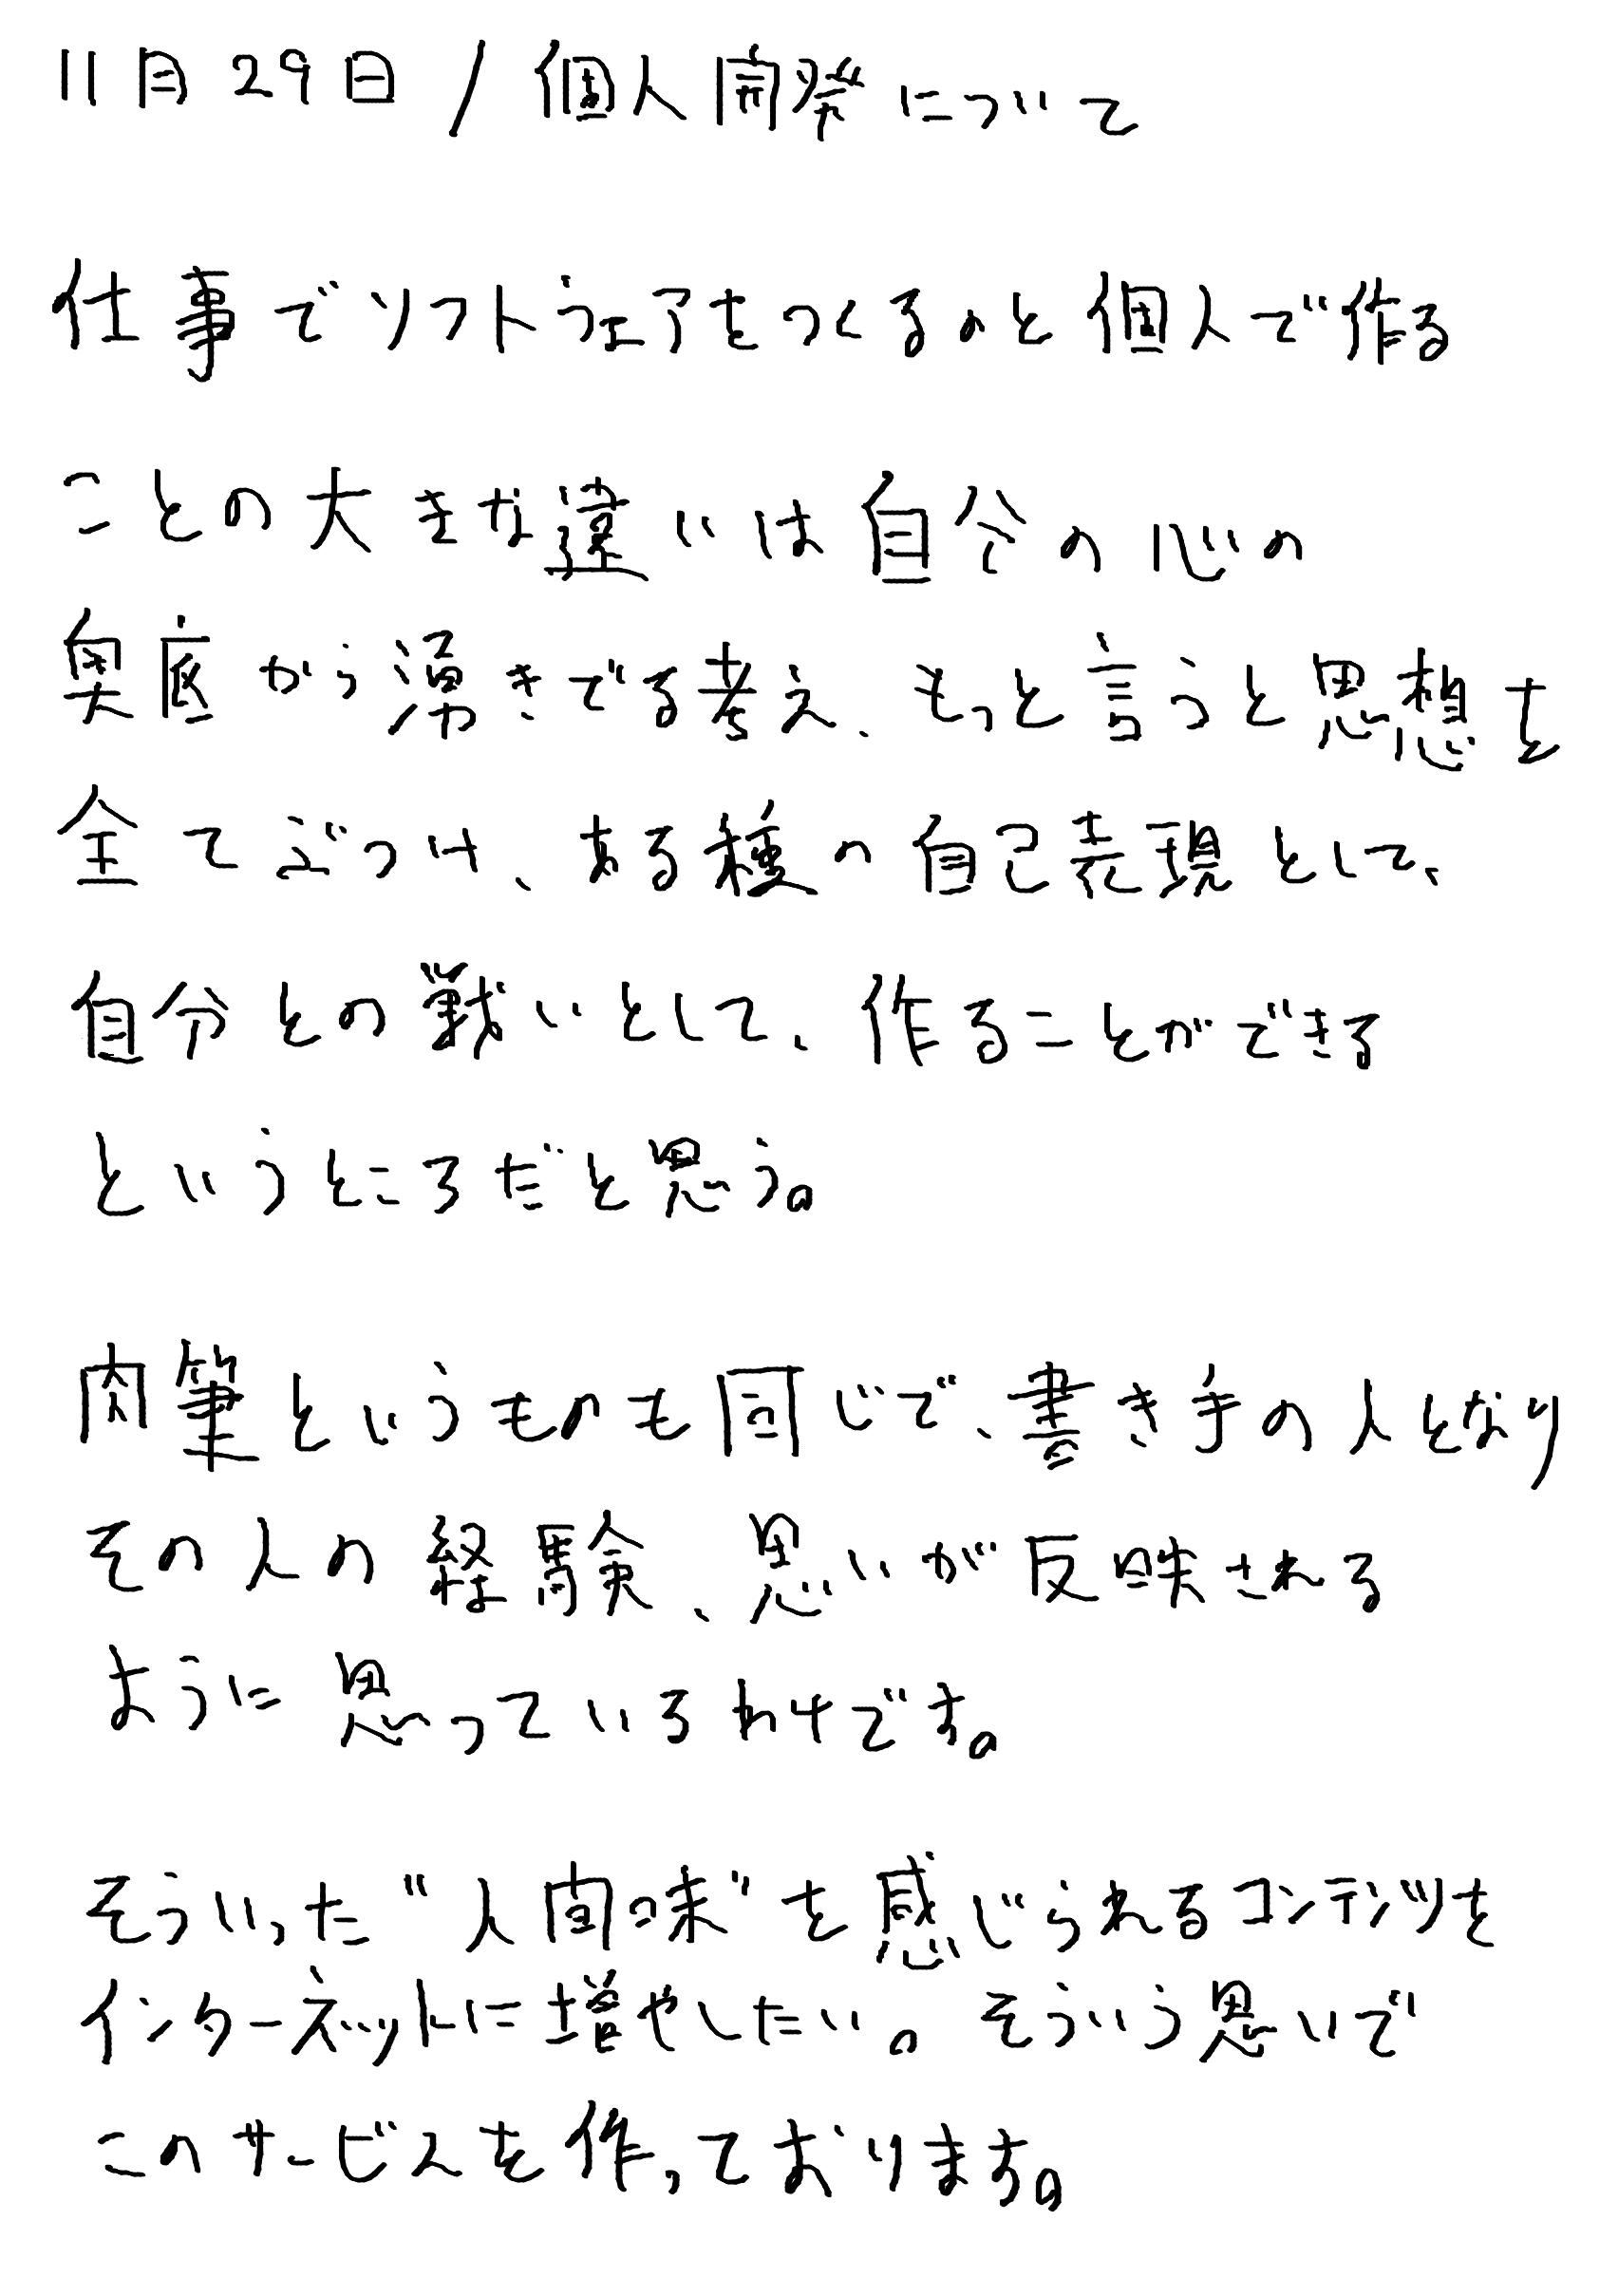 11月29日 / 個人開発について
仕事でソフトウェアをつくるのと個人で作る
ことの大きな違いは自分の心の
奥底から湧きでる考え、もっと言うと思想を
全てぶつけ、ある種の自己表現として、
自分との戦いとして、作ることができる
というところだと思う。
肉筆というものも同じで、書き手の人となり
その人の経験、思いが反映される
ように思っているわけです。
そういった"人間味"を感じられるコンテンツを
インターネットに増やしたい。そういう思いで
このサービスを作っております。